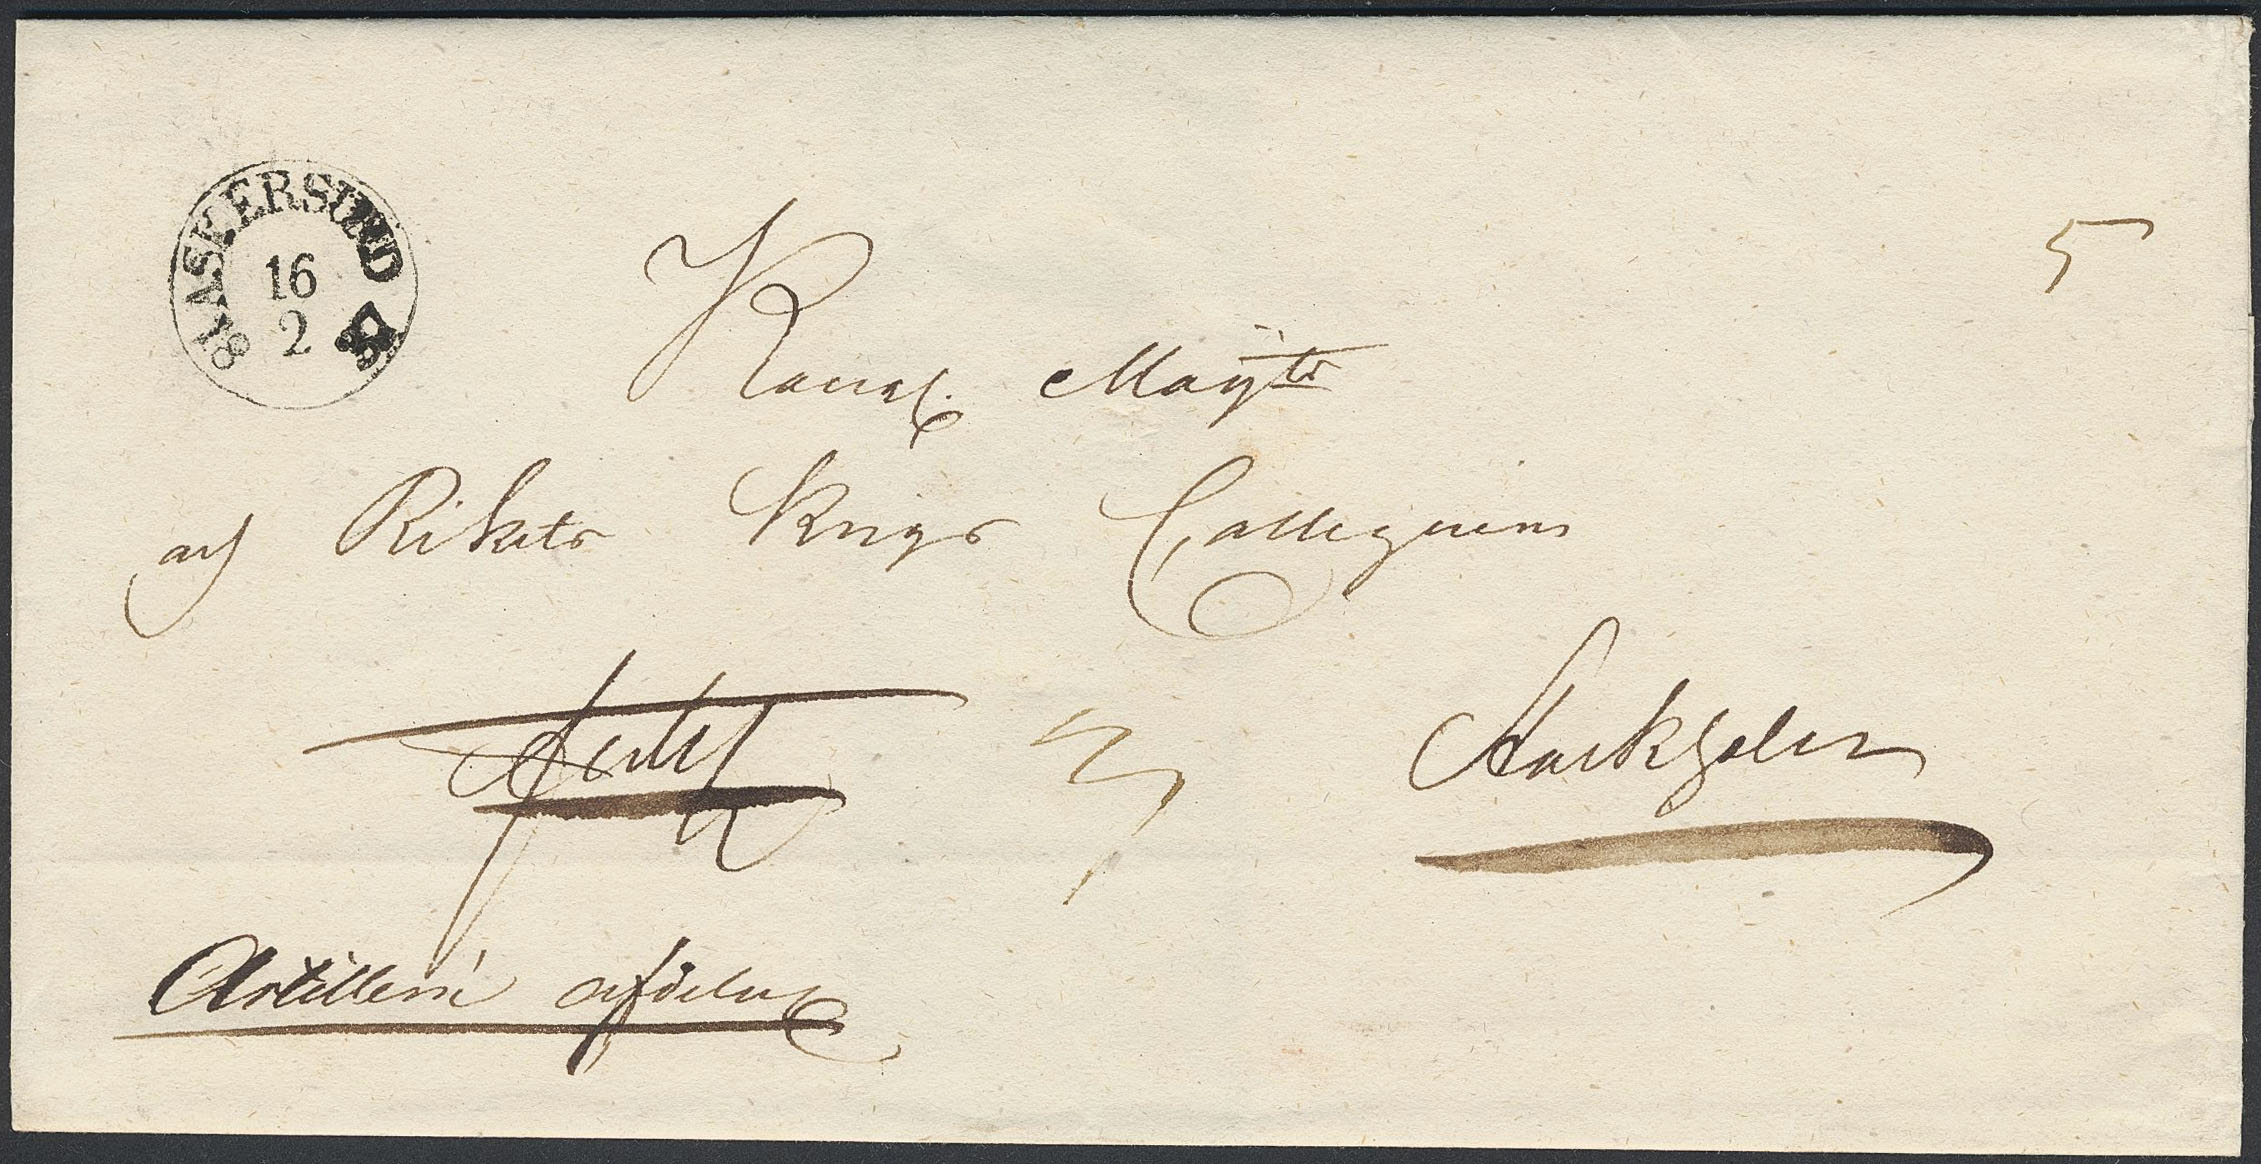 ASKERSUND
16
2
5
Kongl. Maÿts
och Rikets Krigs Collegium
Stockholm
Artilleri afdeln